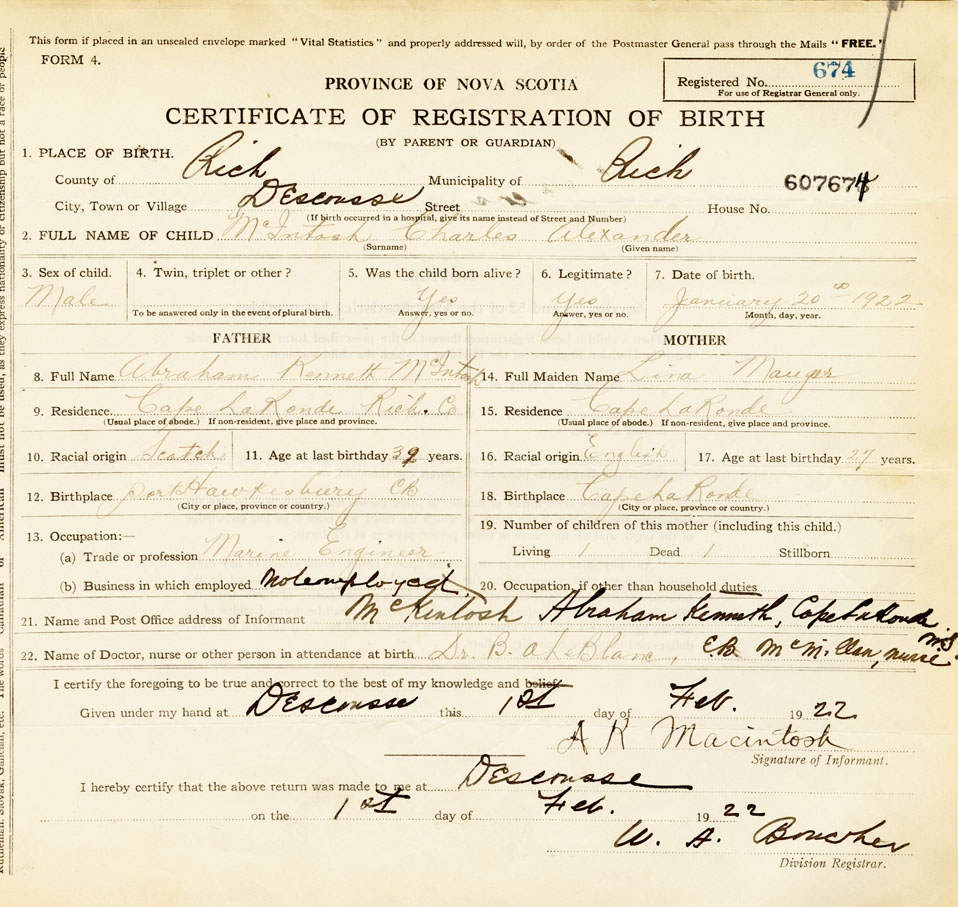 This form if placed in an unsealed envelope marked "Vital Statistics" and properly addressed will, by order of the Postmaster General pass through the Mails "FREE."
FORM 4.
Registered No. 674
For use of Registrar General only.
PROVINCE OF NOVA SCOTIA
CERTIFICATE OF REGISTRATION OF BIRTH
(BY PARENT OR GUARDIAN)
1. PLACE OF BIRTH.
County of Rich Municipality of Rich
607674
City, Town or Village Descousse Street House No.
(If birth occurred in a hospital, give its name instead of Street and Number)
2. FULL NAME OF CHILD McIntosh Charles Alexander
(Surname) (Given name)
3. Sex of child. 4. Twin, triplet or other? 5. Was the child born alive? 6. Legitimate? 7. Date of birth.
Male Yes Yes January 20 1922
To be answered only in the event of plural birth. Answer, yes or no. Answer, yes or no. Month, day, year.
FATHER MOTHER
8. Full Name Abraham Kenneth McIntosh 14. Full Maiden Name Lina Mauger
9. Residence Cape LaRonde Rich. Co 15. Residence Cape LaRonde
(Usual place of abode.) If non-resident, give place and province. (Usual place of abode.) If non-resident, give place and province.
10. Racial origin Scotch 11. Age at last birthday 39 years. 16. Racial origin English 17. Age at last birthday 27 years.
12. Birthplace Port Hawkesbury CB 18. Birthplace Cape LaRonde
(City or place, province or country.) (City or place, province or country.)
13. Occupation:— 19. Number of children of this mother (including this child.)
(a) Trade or profession Marine Engineer Living 1 Dead 1 Stillborn
(b) Business in which employed Not employed 20. Occupation, if other than household duties
21. Name and Post Office address of Informant McKintosh Abraham Kenneth, Cape LaRonde N.S.
22. Name of Doctor, nurse or other person in attendance at birth Dr. B. A LeBlanc, McMillan, nurse
I certify the foregoing to be true and correct to the best of my knowledge and belief
Given under my hand at Descousse this 1st day of Feb. 1922
A K Macintosh
Signature of Informant.
I hereby certify that the above return was made to me at Descousse
on the 1st day of Feb. 1922
W. A. Boucher
Division Registrar.